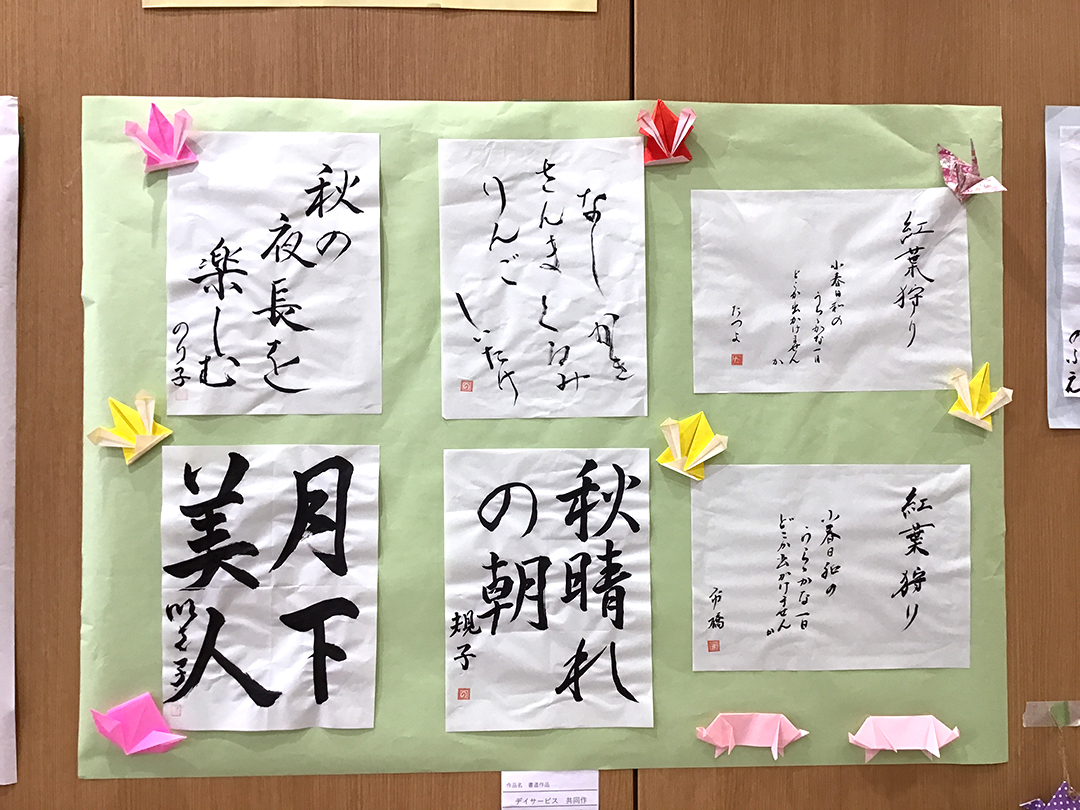 秋の
夜長を
楽しむ
のり子
なし かき
さんま くるみ
りんご しいたけ
紅葉狩り
小春日和の
うららかな一日
どこか出かけません
か
たつよ
月下
美人
秋晴れ
の朝
規子
紅葉狩り
小春日和の
うららかな一日
どこか出かけません
か
市橋
のぶえ
作品名 書道作品
デイサービス 共同作